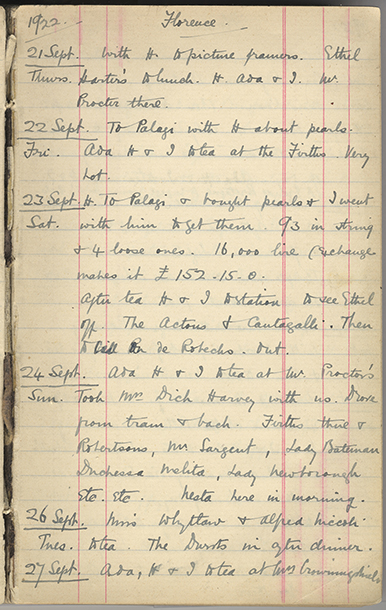 1922. — Florence.
21 Sept. With H to picture framers. Ethel
Thurs. Harter's to lunch. H. Ada & I. Mr
Procter there.
22 Sept. To Palagi with H about pearls.
Fri. Ada H & I to tea at the Firths. Very
hot.
23 Sept. H. To Palagi & bought pearls & I went
Sat. with him to get them. 93 in string
& 4 loose ones. 16,000 lire (exchange
makes it £152-15.0.
After tea H & I to station to see Ethel
off. The Actons & Cantagalli. Then
to call de Robecks. Out.
24 Sept. Ada H & I to tea at Mr. Proctor's
Sun. Took Mrs Dick Harvey with us. Drove
from tram & back. Firths there &
Robertsons, Mr. Sargent, Lady Bateman
Duchessa Melita, Lady Newborough
etc. etc. Nesta here in morning.
26 Sept. Miss Whyttaw & Alfred Niccoli
Tues. to tea. The Dursts in after dinner.
27 Sept. Ada, H & I to tea at Mrs